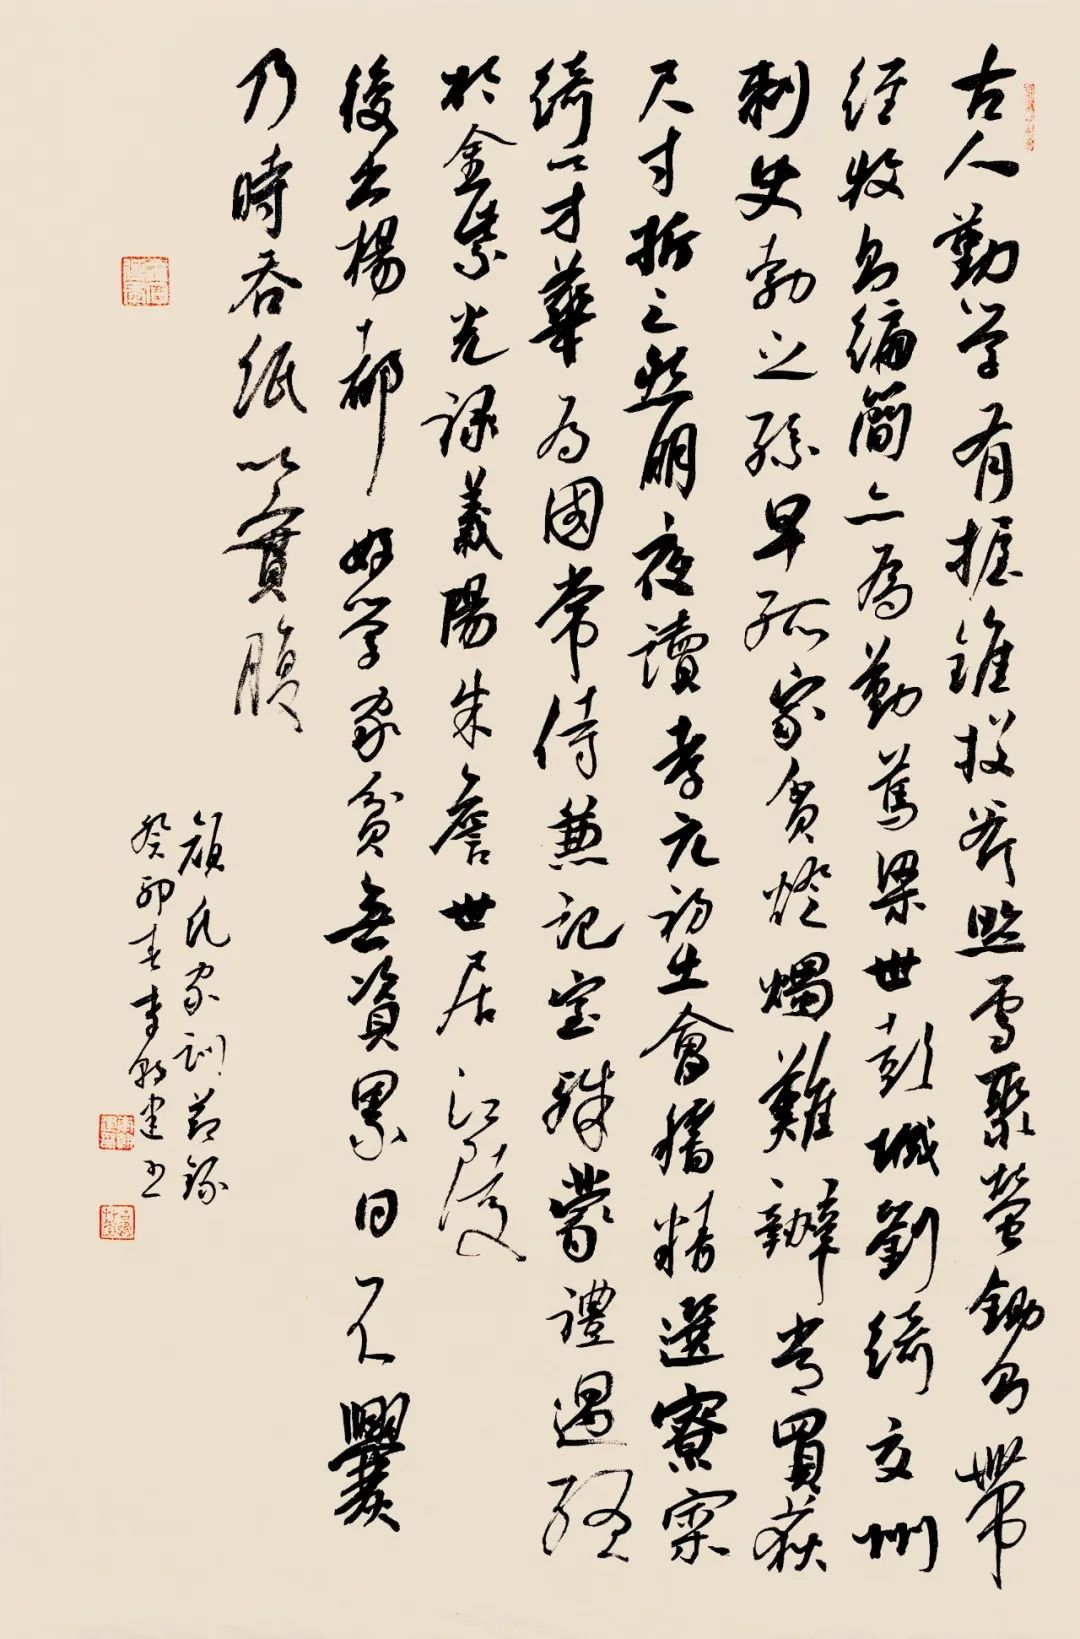 古人勤學有握錐投斧照雪聚螢鋤則帶
經牧則編簡亦為勤篤梁世彭城劉綺交州
刺史勃之孫早孤家貧燈燭難辦常買荻
尺寸折之然明夜讀孝元初出會稽精選寮寀
綺以才華為國常侍兼記室殊蒙禮遇終
於金紫光祿義陽朱詹世居江陵
後出楊都好學家貧無資累日不爨
乃時吞紙以實腹
顏氏家訓節錄
癸卯春李建書